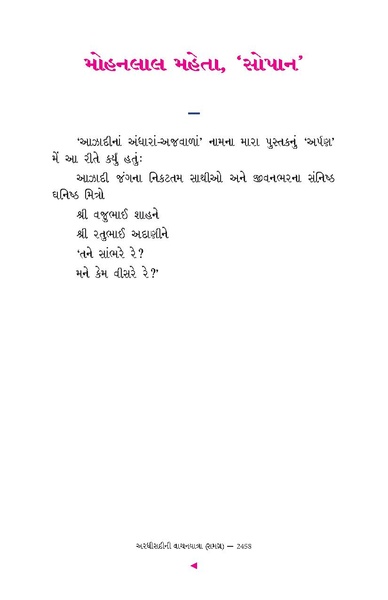 મોહનલાલ મહેતા, ‘સોપાન’
‘આઝાદીનાં અંધારાં-અજવાળાં’ નામના મારા પુસ્તકનું ‘અર્પણ’
મેં આ રીતે કર્યું હતું:
આઝાદી જંગના નિકટતમ સાથીઓ અને જીવનભરના સંનિષ્ઠ
ઘનિષ્ઠ મિત્રો
શ્રી વજુભાઈ શાહને
શ્રી રતુભાઈ અદાણીને
‘તને સાંભરે રે?
મને કેમ વીસરે રે?’
અરધીસદીની વાચનયાત્રા (સમગ્ર) — 2455